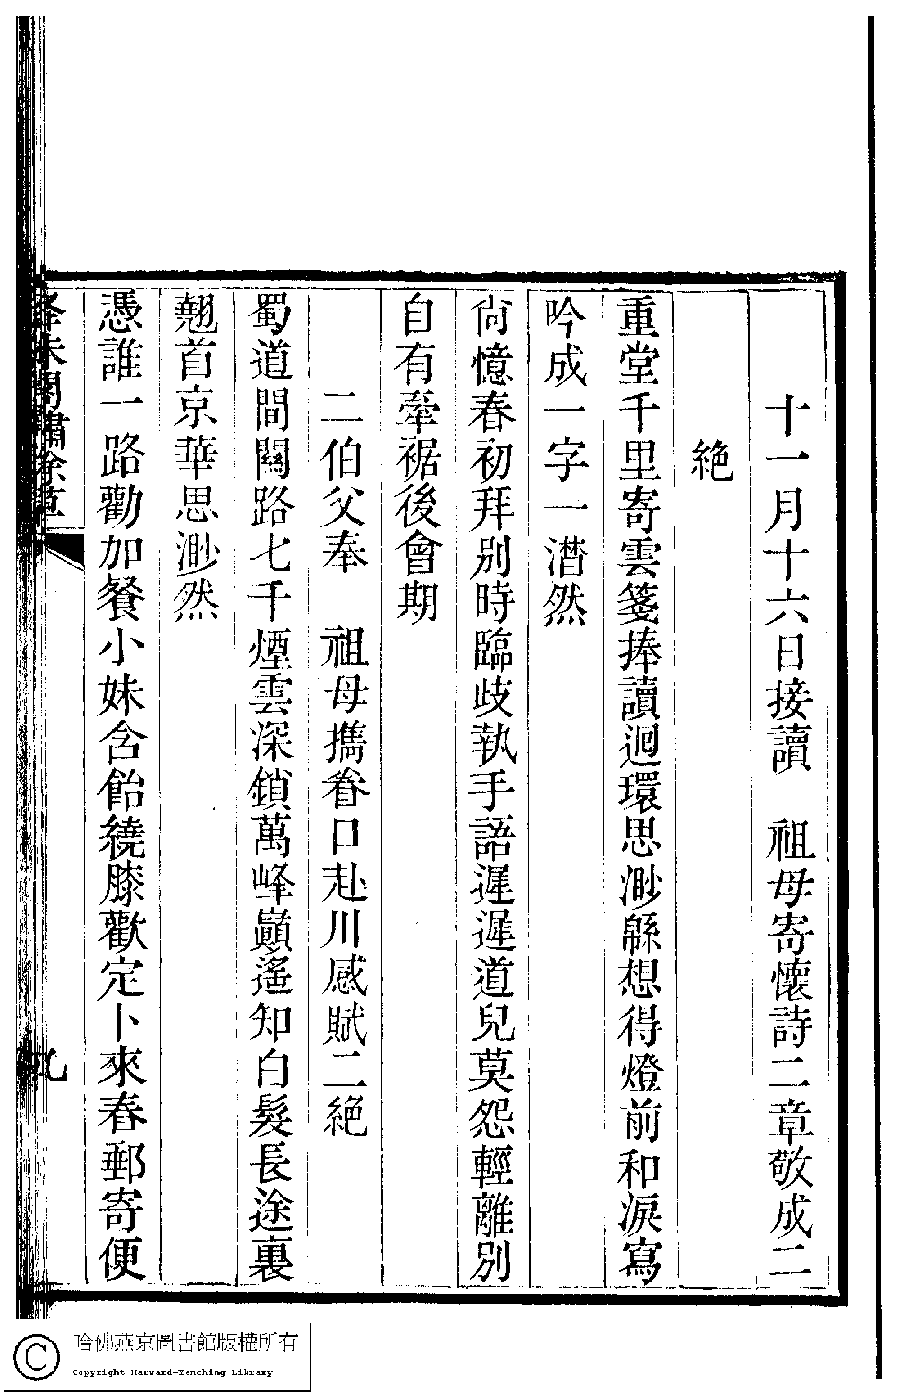 十一月十六日接讀　祖母寄懷詩二章敬成二
絶
重堂千里寄雲箋捧讀迴環思渺緜想得燈前和淚寫
吟成一字一潸然
尙憶春初拜别時臨歧執手語遲遲道兒莫怨輕離别
自有牽裾後會期
二伯父奉　祖母攜眷口赴川感賦二絶
蜀道間關路七千煙雲深鎖萬峰巓遙知白髮長途裏
翹首京華思渺然
憑誰一路勸加餐小妹含飴繞膝歡定卜來春郵寄便
九
哈佛燕京圖書館版權所有
Copyright Harvard-Yenching Library